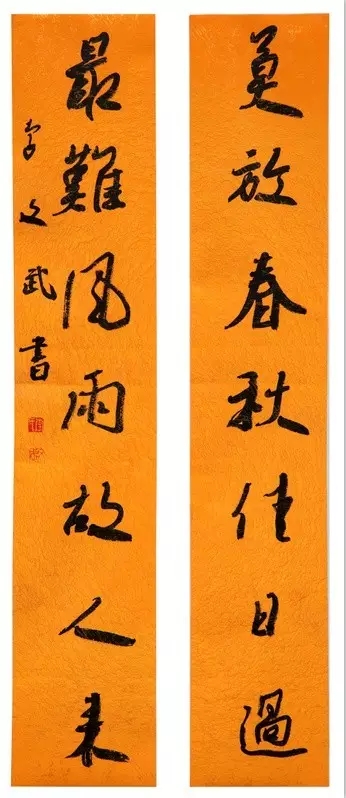 莫放春秋佳日過
最難風雨故人來
李文武書